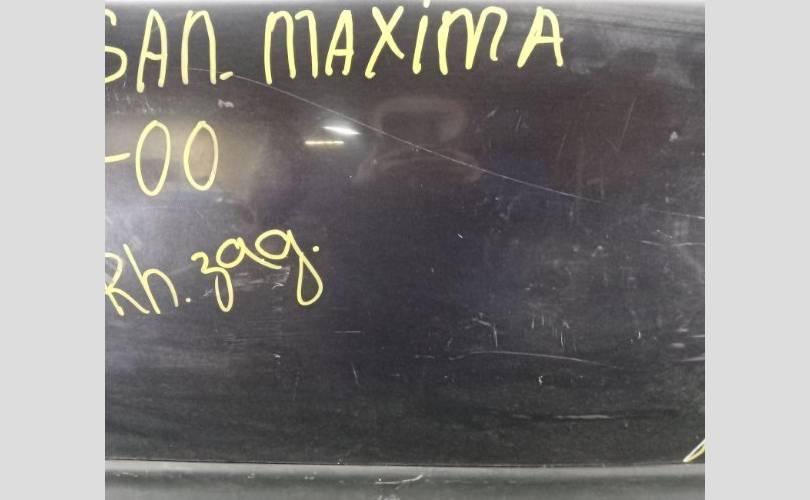 SAN. MAXIMA
-00
Rh. zag.